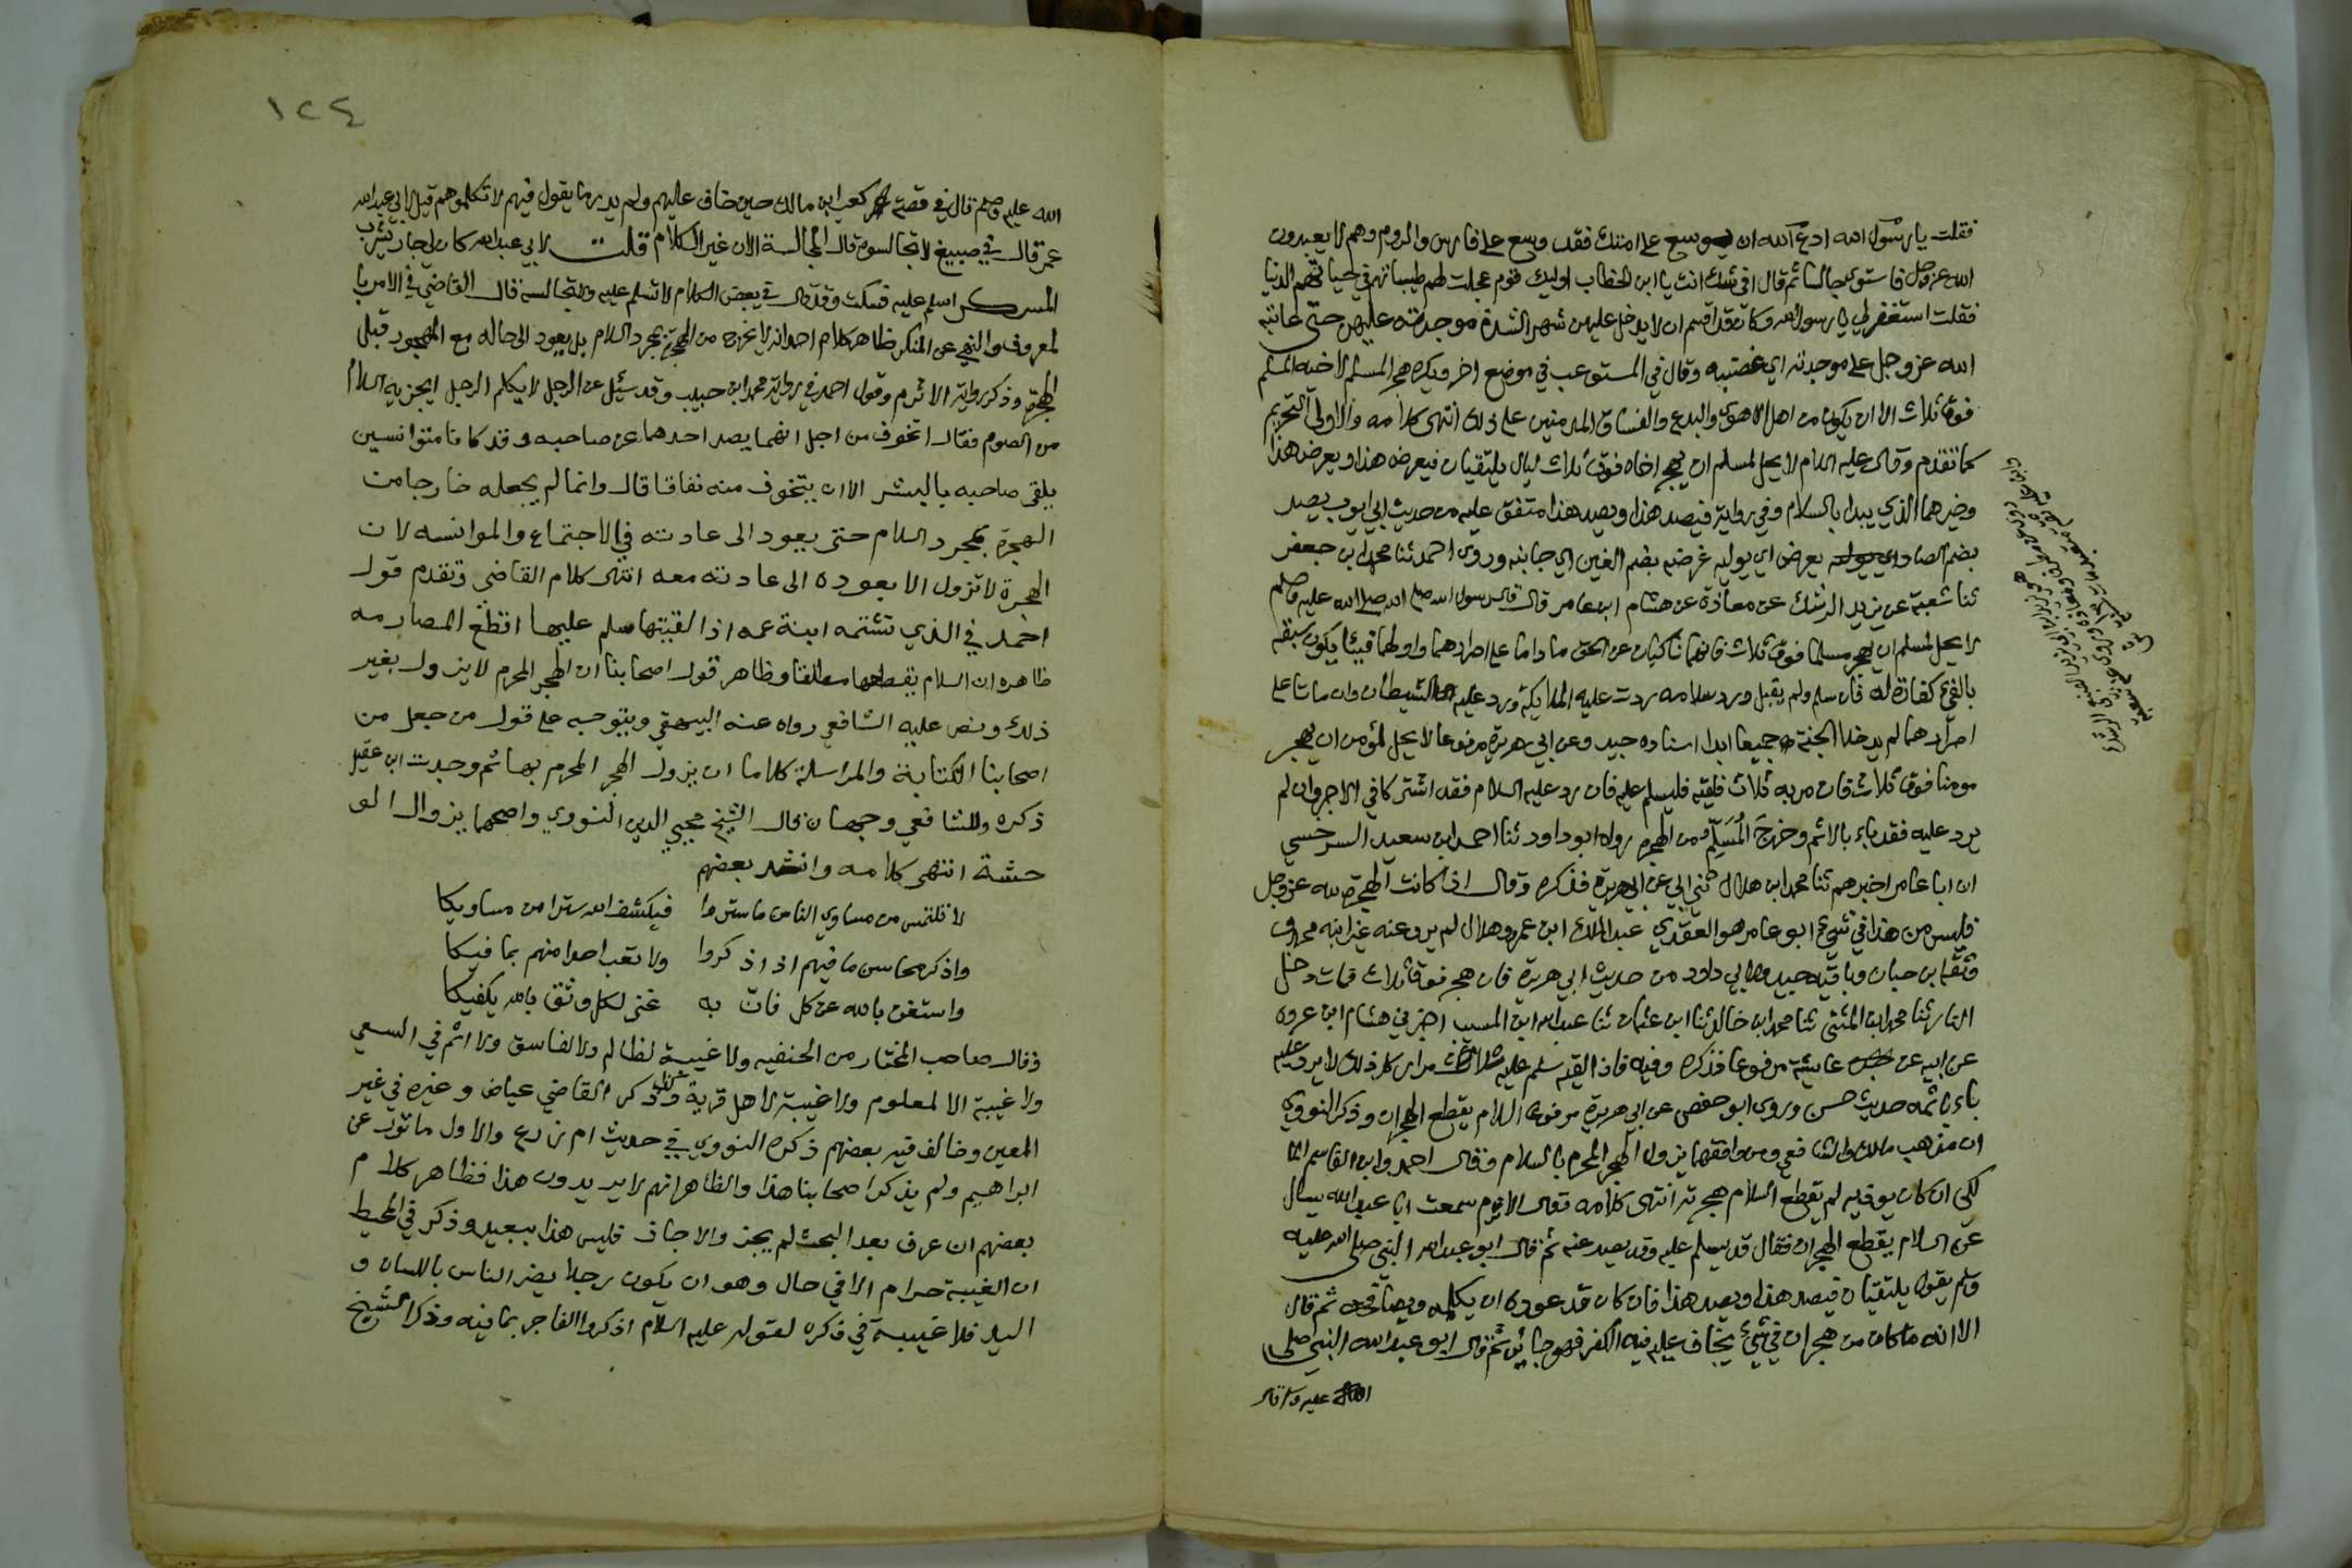 فقلت يا رسول الله ادع الله ان يوسع على امتك فقد وسع على فارس والروم وهم لا يعبدون
الله عز وجل فاستوى جالسا ثم قال افي شك انت يا ابن الخطاب اوليك قوم عجلت لهم طيباتهم في حياتهم الدنيا
فقلت استغفر لي يا رسول الله وكان قد اقسم ان لا يدخل عليهن شهرا لشدة موجدته عليهن حتى عاتبه
الله عز وجل على موجدته اي غضبه وقال في المستوعب في موضع اخر ويكره هجر المسلم لاخيه المسلم
فوق ثلاث الا ان يكون من اهل الاهوى والبدع والفساق المدمنين على ذلك انتهى كلامه والاولى التحريم
كما تقدم وقال عليه السلام لا يحل لمسلم ان يهجر اخاه فوق ثلاث ليال يلتقيان فيعرض هذا ويعرض هذا
وخيرهما الذي يبدا بالسلام وفي رواية فيصد هذا ويصد هذا متفق عليه من حديث ابي ايوب يصد
بضم الصاد يعرض اي يوليه عرضه بضم العين اي جانبه وروى احمد ثنا محمد ابن جعفر
ثنا شعبة عن يزيد الرشك عن معاذة عن هشام ابن عامر قال قال رسول الله صلى الله عليه وسلم
لا يحل لمسلم ان يهجر مسلما فوق ثلاث فانهما ناكبان عن الحق ما داما على اصرارهما واولهما فيئا يكون سبقه
بالفئ كفارة له فان سلم ولم يقبل ورد سلامه ردت عليه الملايكة ورد عليه الشيطان وان ماتا على
اصرارهما لم يدخلا الجنة جميعا ابدا اسناده جيد وعن ابي هريرة مرفوعا لا يحل لمؤمن ان يهجر
مومنا فوق ثلاث فان مر به ثلاث فلقيه فليسلم عليه فان رد عليه السلام فقد اشتركا في الاجر وان لم
يرد عليه فقد باء بالاثم وخرج المُسَلِّم من الهجرة رواه ابو داود ثنا احمد ابن سعيد السرخسي
ان ابا عامر اخبرهم ثنا محمد ابن هلال ثني ابي عن ابي هريرة فذكره وقال اذا كانت الهجرة لله عز وجل
فليس من هذا في شيء ابو عامر هو العقدي عبد الملك ابن عمرو وهلال لم يرو عنه غير ابنه محمد
وثقه ابن حبان وباقيه جيد ولابي داود من حديث ابي هريرة فان هجر فوق ثلاث فمات دخل
النار ثنا محمد ابن المثنى ثنا محمد ابن خالد ثنا ابن عثمان ثنا عبد الله ابن المسيب اخبرني هشام ابن عروة
عن ابيه عن عايشة مرفوعا فذكره وفيه فاذا لقيه سلم عليه ثلاث مرار كل ذلك لا يرد عليه
باء باثمه حديث حسن وروى ابو حفص عن ابي هريرة مرفوعا السلام يقطع الهجران وذكر النووي
ان مذهب مالك والشافعي ومن وافقهما يزول الهجر المحرم بالسلام وقال احمد وابن القاسم الما
لكي ان كان يوذيه لم يقطع السلام هجرته انتهى كلامه وقال الاثرم سمعت ابا عبد الله يسال
عن السلام يقطع الهجران فقال قد يسلم عليه وقد يصد عنه ثم قال ابو عبد الله النبي صلى الله عليه
وسلم يقول يلتقيان فيصد هذا ويصد هذا فان كان قد عوده ان يكلمه ويصافحه ثم قال
الا انه ما كان من هجران في شيء يخاف عليه فيه الكفر فهو جائز ثم قال ابو عبد الله النبي صلى
الله عليه وسلم قال
١٢٤
الله عليه وسلم قال في قصة كعب ابن مالك حين خاف عليهم ولم يدر ما يقول فيهم لا تكلموهم قيل لابي عبد الله
عمر قال في صبيغ لا تجالسوه قال المجالسة الان غير الكلام قلت لابي عبد الله كان لي جار يشرب
المسكر اسلم عليه فسكت وقد قال في بعض الكلام لا تسلم عليه ولا تجالسه قال القاضي في الامر با
لمعروف والنهي عن المنكر ظاهر كلام احمد انه لا يخرج من الهجرة بمجرد السلام بل يعود الى حاله مع المهجور قبل
الهجرة وذكر رواية الاثرم وقول احمد في رواية محمد ابن حبيب وقد سئل عن الرجل لا يكلم الرجل ايجزيه السلام
من الصوم فقال اتخوف من اجل انهما يصد احدهما عن صاحبه وقد كانا متوانسين
يلقى صاحبه بالبشر الا ان يتخوف منه نفاقا قال وانما لم يجعله خارجا من
الهجرة بمجرد السلام حتى يعود الى عادته في الاجتماع والموانسه لان
الهجرة لا تزول الا بعوده الى عادته معه انتهى كلام القاضي وتقدم قول
احمد في الذي تشتمه ابنة عمه اذا لقيتها سلم عليها اقطع المصارمه
ظاهره ان السلام يقطعها مطلقا وظاهر قول اصحابنا ان الهجر المحرم لا يزول بغير
ذلك ونص عليه الشافعي رواه عنه البيهقي ويتوجه على قول من جعل من
اصحابنا الكتابة والمراسلة كلاما ان يزول الهجر المحرم بها ثم وجدت ابن عقيل
ذكره وللشافعي وجهان قال الشيخ محيي الدين النووي واصحهما يزوال الو
حشة انتهى كلامه وانشد بعضهم
لا تلتمس من مساوي الناس ما ستروا فيكشف الله سترا من مساويكا
واذكر محاسن ما فيهم اذا ذكروا ولا تعب احدا منهم بما فيكا
واستغن بالله عن كل فان به غنى لكل وثق بالله يكفيكا
وقال صاحب المختار من الحنفيه ولا غيبة لظالم ولا لفاسق ولا اثم في السعي
ولا غيبة الا لمعلوم ولا غيبة لاهل قرية وكذلك ذكر القاضي عياض وغيره في غير
المعين وخالف فيه بعضهم ذكره النووي في حديث ام زرع والاول ماثور عن
ابراهيم ولم يذكر اصحابنا هذا والظاهر انهم لا يريدون هذا فظاهر كلام
بعضهم ان عرف بعد البحث لم يجز والا جاز فليس هذا ببعيد وذكر في المحيط
ان الغيبة حرام الا في حال وهو ان يكون رجلا يضر الناس باللسان و
اليد فلا غيبة في ذكره لقوله عليه السلام اذكروا الفاجر بما فيه وذكر الشيخ